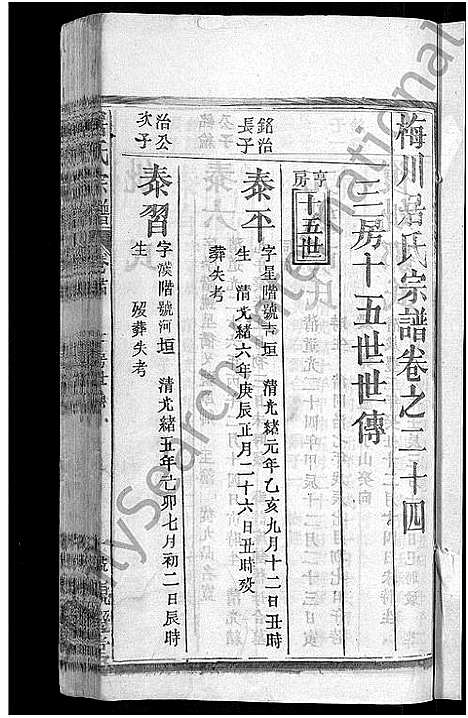 梅川居氏宗譜卷之二十四
三房十五世世傳
亨房
十五世
銘治長子
泰平
字星階號吉垣 清光緒元年乙亥九月十二日丑時
生 清光緒六年庚辰正月二十六日丑時歿
葬失考
治公次子
泰習
字漢階號河垣 清光緒五年己卯七月初二日辰時
生 歿葬失考
MySearch International